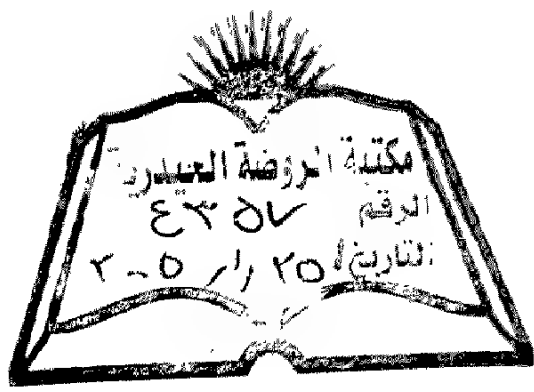 مكتبة الروضة الحيدرية
الرقم ٤٣٥٧
التاريخ ٢٥